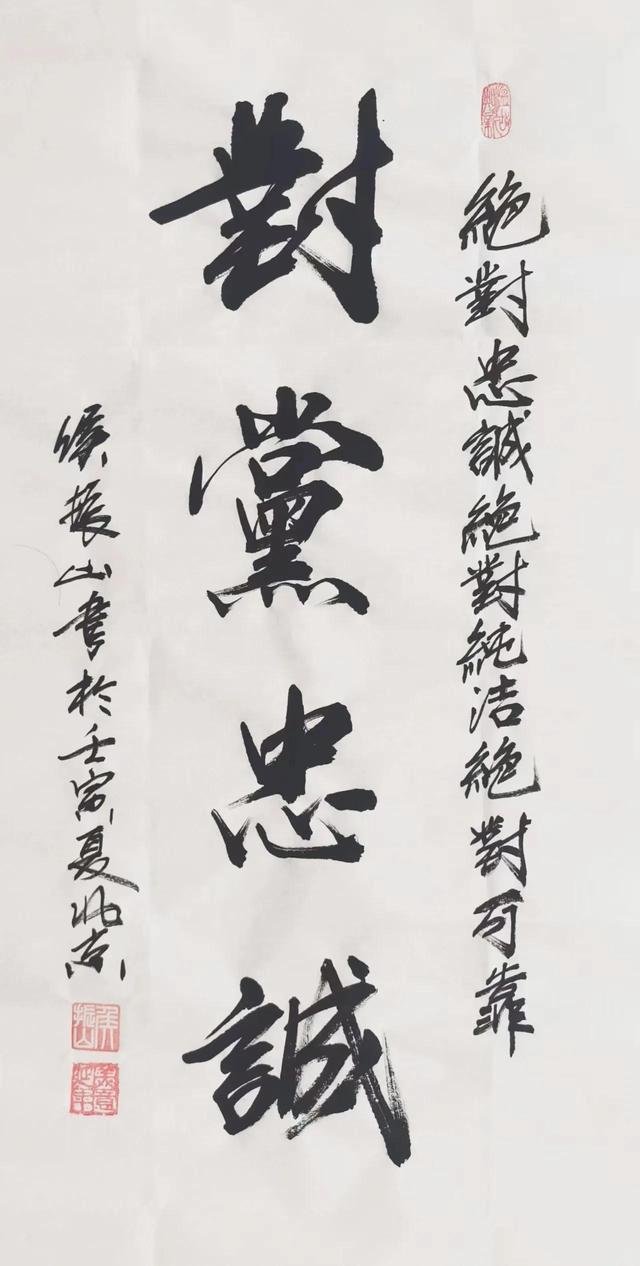 絶對忠誠絶對純洁絶對可靠
對黨忠誠
侯振山書於壬寅夏北京
侯振山